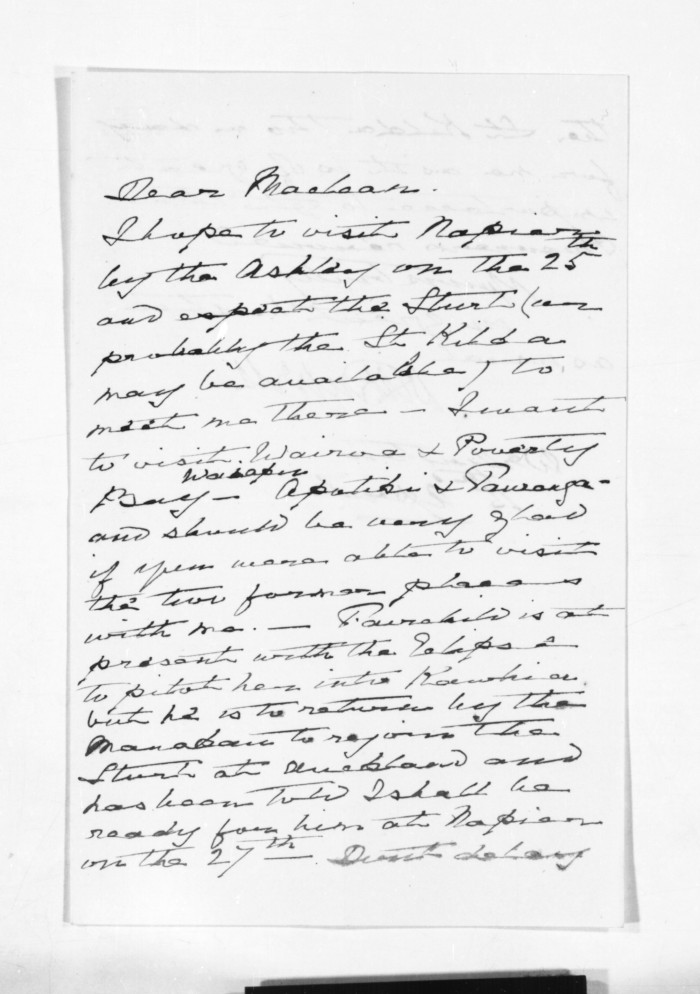 Dear Maclean.
I hope to visit Napier
by the Ashley on the 25th
and expect the Sturt (or
probably the St Kilda
may be available) to
meet me there – I want
to visit Wairoa & Poverty
Bay – Opotiki & Tauranga –
and should be very glad
if you were able to visit
the two former places
with me. – Fairchild is at
present with the Eclipse
to pilot her into Kawhia
but he is to return by the
Manakau to rejoin the
Sturt at Auckland and
has been told I shall be
ready for him at Napier
on the 27th.